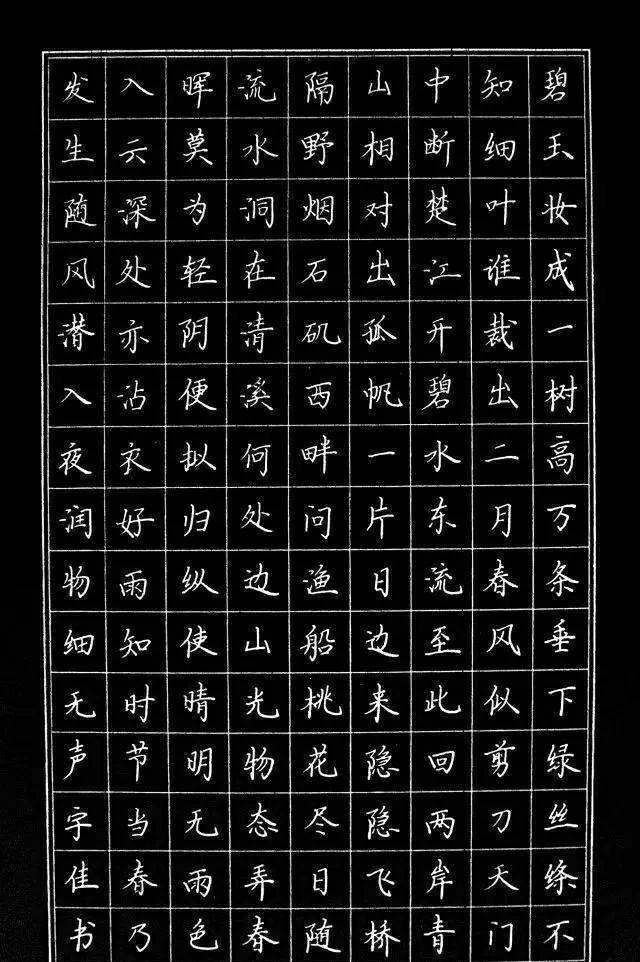 碧玉妆成一树高万条垂下绿丝绦不
知细叶谁裁出二月春风似剪刀天门
中断楚江开碧水东流至此回两岸青
山相对出孤帆一片日边来隐隐飞桥
隔野烟石矶西畔问渔船桃花尽日随
流水洞在清溪何处边山光物态弄春
晖莫为轻阴便拟归纵使晴明无雨色
入云深处亦沾衣好雨知时节当春乃
发生随风潜入夜润物细无声字佳书